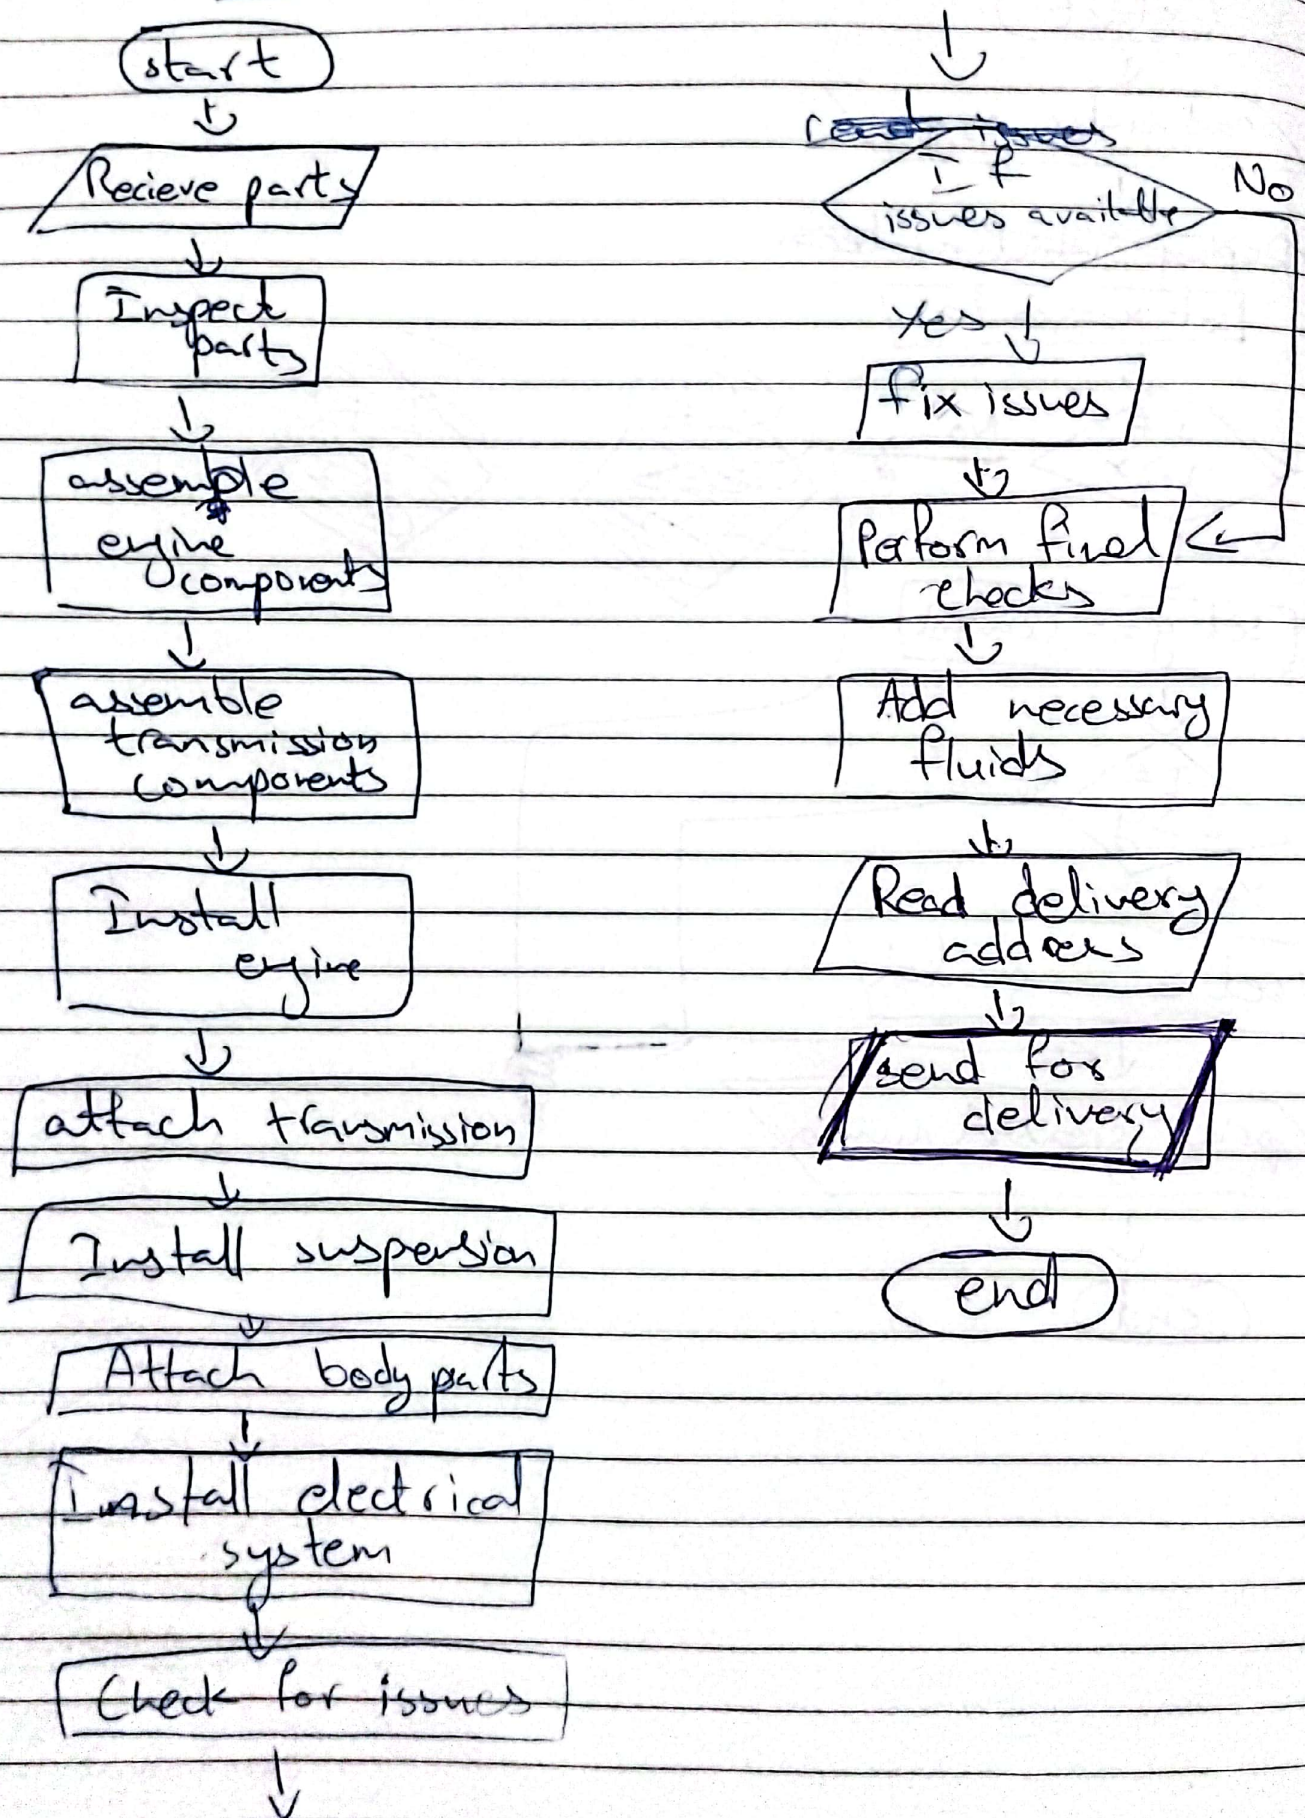 start
Recieve parts
Inspect
parts
assemble
engine
components
assemble
transmission
components
Install
engine
attach transmission
Install suspension
Attach body parts
Install electrical
system
Check for issues
If
issues available
No
Yes
fix issues
Perform final
checks
Add necessary
fluids
Read delivery
address
send for
delivery
end